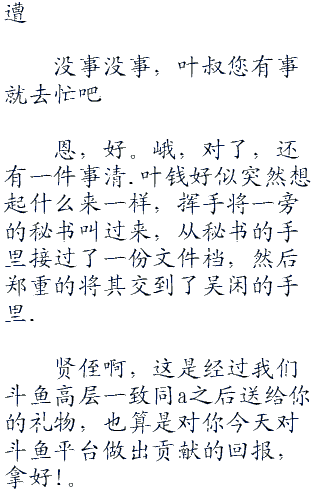 遭
没事没事，叶叔您有事
就去忙吧
恩，好。峨，对了，还
有一件事清.叶钱好似突然想
起什么来一样，挥手将一旁
的秘书叫过来，从秘书的手
里接过了一份文件档，然后
郑重的将其交到了吴闲的手
里.
贤侄啊，这是经过我们
斗鱼高层一致同a之后送给你
的礼物，也算是对你今天对
斗鱼平台做出贡献的回报，
拿好!。